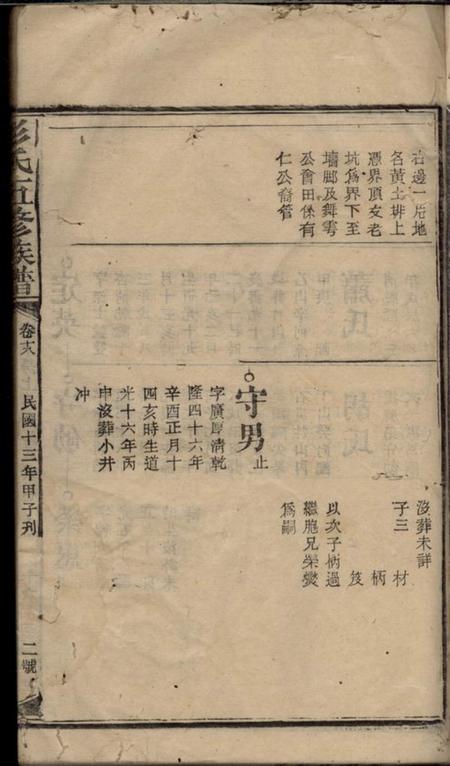 右邊一片地
名黃土排上
憑界頂文老
坑為界下至
墻脚及舞雩
公會田係有
仁公裔管
沒葬未詳
子三　材
柄
筊
以次子柄過
繼胞兄榮爕
為嗣
守男止
字廣厚清乾
隆四十六年
辛酉正月十
四亥時生道
光十六年丙
申沒葬小井
冲
彭氏五修族譜
卷十八
民國十三年甲子刊
二號